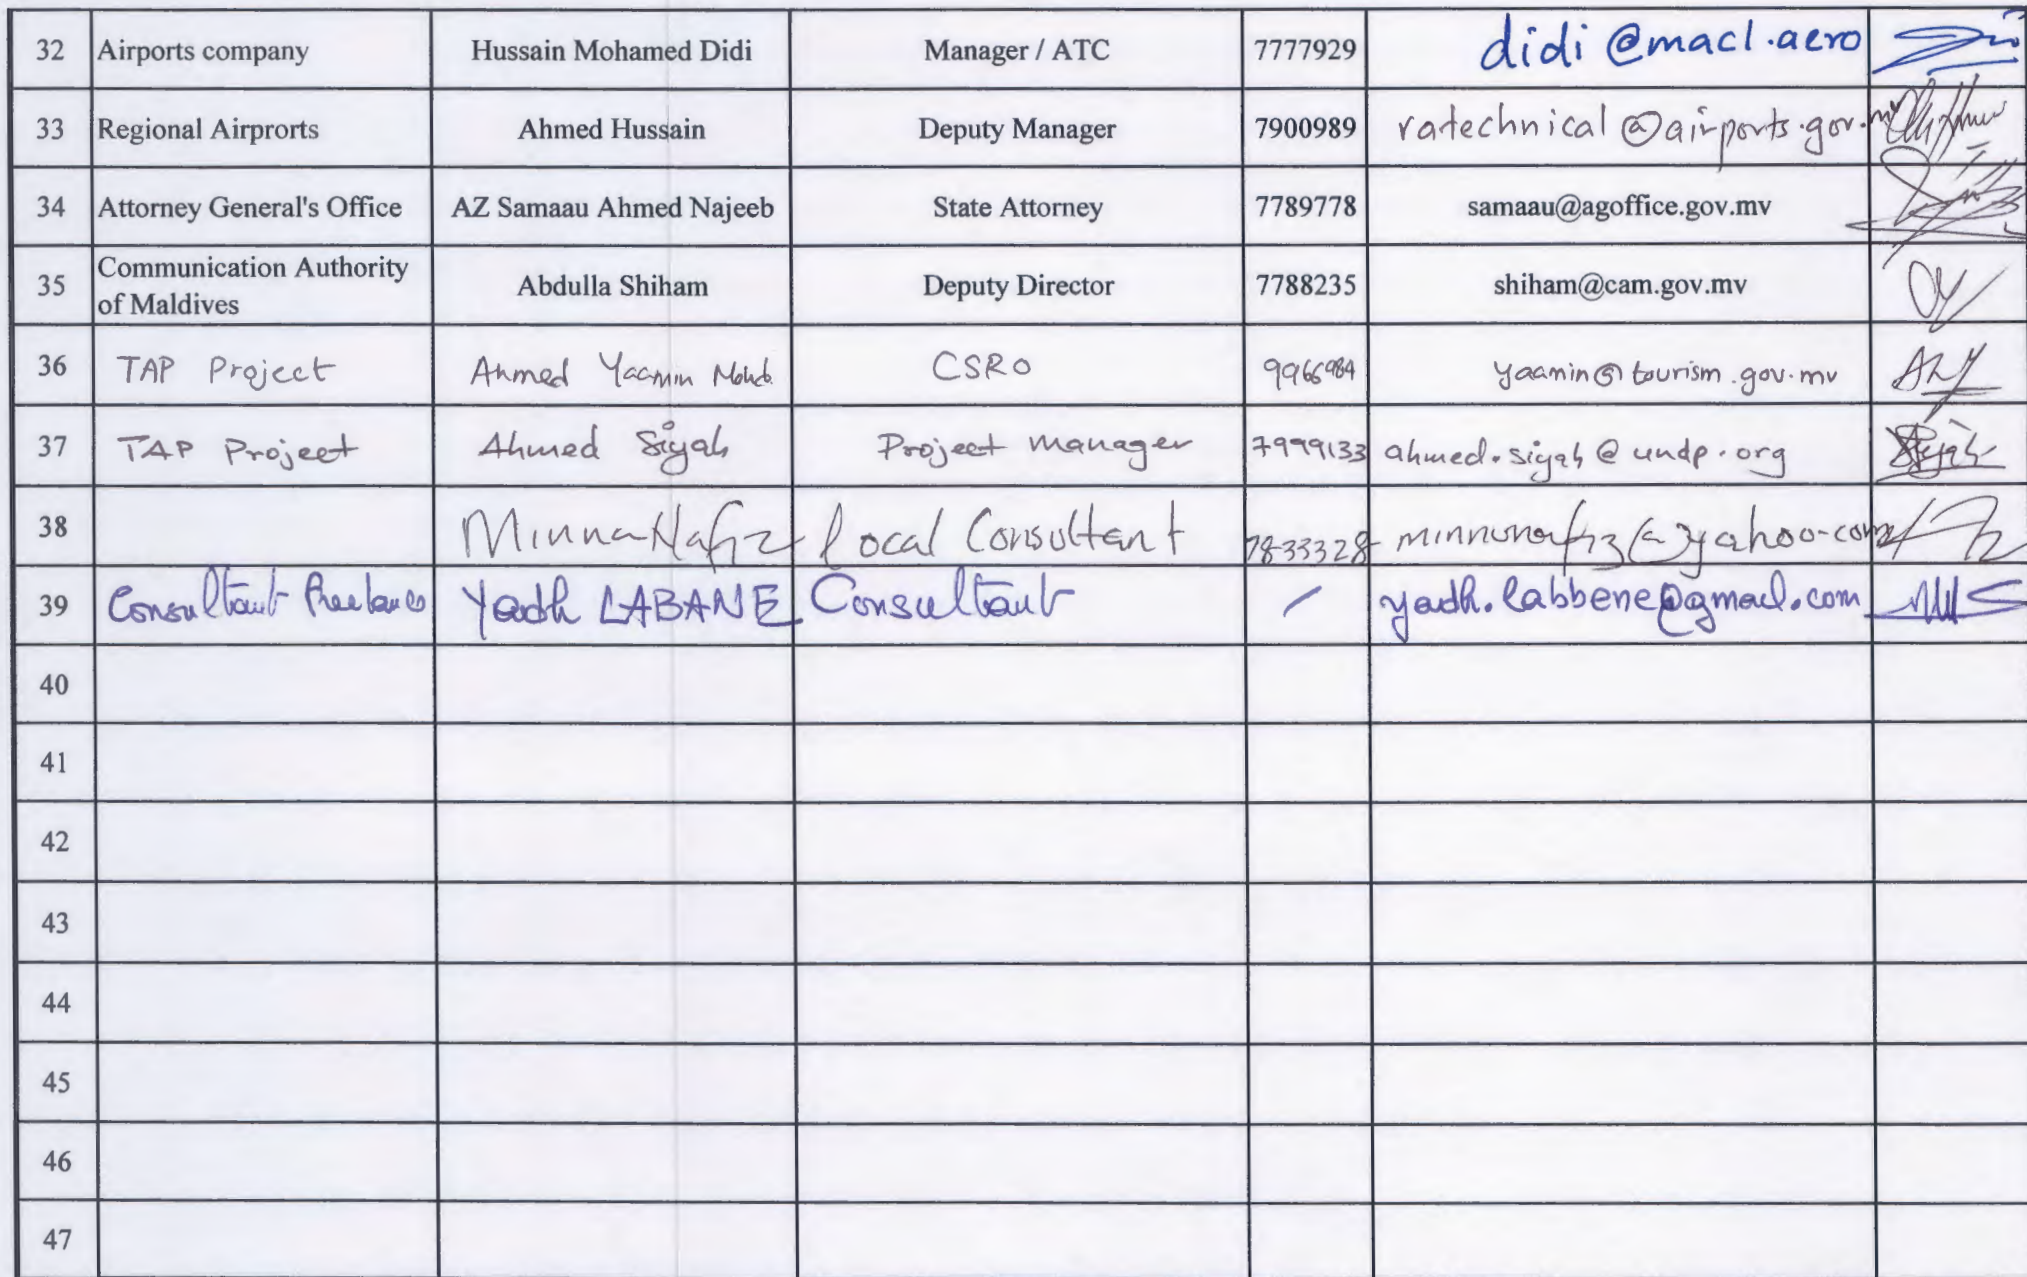 32 Airports company Hussain Mohamed Didi Manager / ATC 7777929 didi@macl.aero
33 Regional Airprorts Ahmed Hussain Deputy Manager 7900989 ratechnical@airports.gov.mv
34 Attorney General's Office AZ Samaau Ahmed Najeeb State Attorney 7789778 samaau@agoffice.gov.mv
35 Communication Authority of Maldives Abdulla Shiham Deputy Director 7788235 shiham@cam.gov.mv
36 TAP Project Ahmed Yaamin Mohd. CSRO 9966984 yaamin@tourism.gov.mv
37 TAP Project Ahmed Siyah Project Manager 7999133 ahmed.siyah@undp.org
38 Minna Hafiz Local Consultant 7833328
39 Consultant freelance Yadh LABANE Consultant / yadh.labbene@gmail.com
40
41
42
43
44
45
46
47